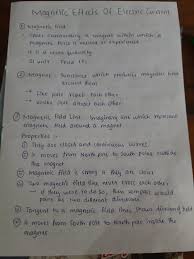 Magnetic Effects Of Electric Current
Magnetic Field
Space surrounding a magnet within which a
magnetic force is exerted or experienced
It is a vector quantity
SI unit - Tesla (T)
Magnet - Substance which produces magnetic field
around them
→ Like poles repel each other
→ Unlike poles attract each other
Magnetic Field Lines - Imaginary line which represent
magnetic field around a magnet
Properties -
They are closed and continuous curves
It moves from North pole to South pole outside
the magnet
Magnetic field is strong if they are closer
Two magnetic field line never cross each other
→ if they were to do so, then compass would
point at two different directions
Tangent to a magnetic field lines shows direction of field
It moves from South pole to North pole inside the
magnet